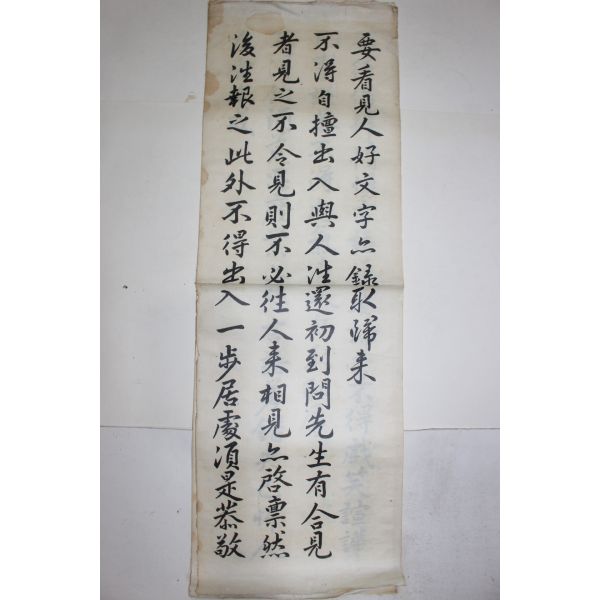 要看見人好文字亦錄取歸来
不得自擅出入與人往還初到問先生有合見
者見之不令見則不必往人来相見亦啓稟然
後往報之此外不得出入一步居處湏是恭敬